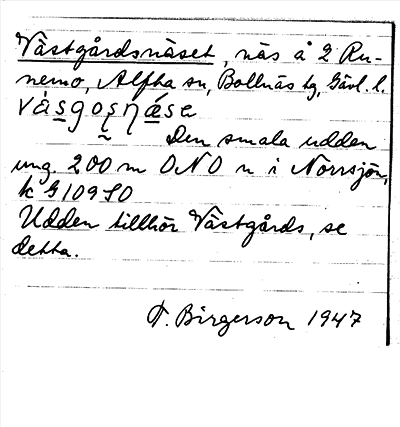 Västgårdsnäset, näs å 2 Ru-
nemo, Alfta sn, Bollnäs tg, Gävl. l.
vàsgosnáse
Den smala udden
ung. 200 m ONO n i Norrsjön,
k G 109 SO
Udden tillhör Västgårds, se
detta.
F. Birgerson 1947